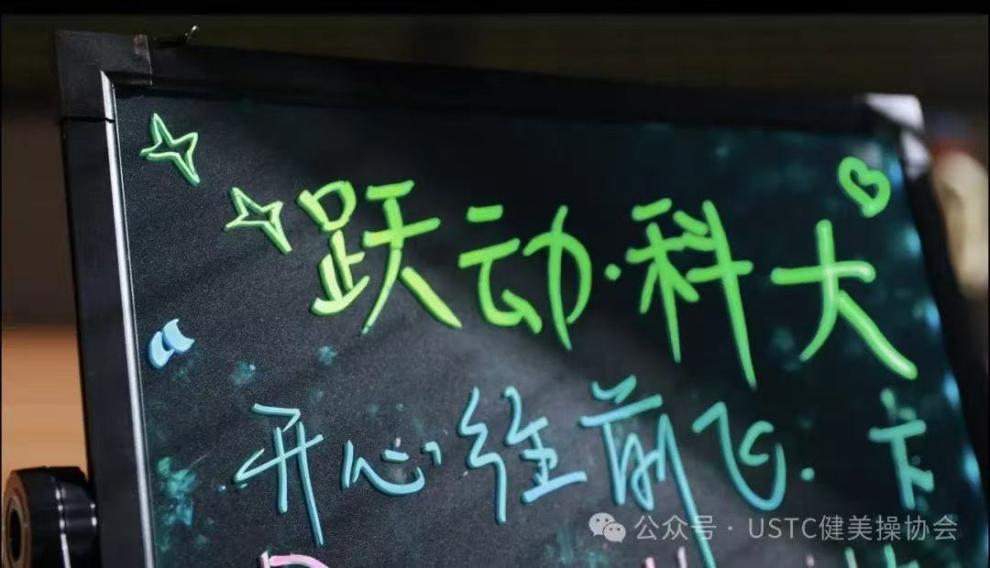 跃动·科大
开心往前飞.
公众号 · USTC健美操协会